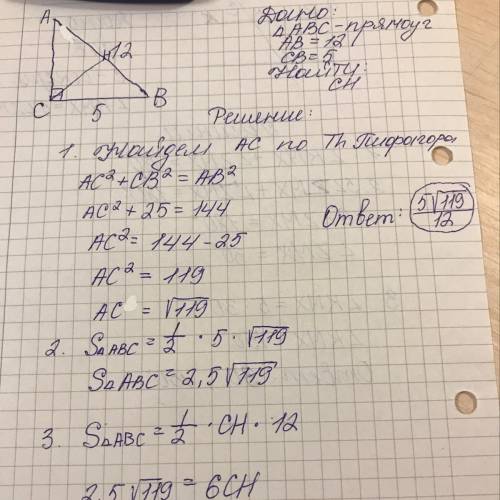 A
H
12
C
5
B
Дано:
△ABC - прямоуг
AB = 12
CB = 5
Найти:
CH
Решение:
1. Найдем AC по Th Пифагора
AC² + CB² = AB²
AC² + 25 = 144
AC² = 144 - 25
AC² = 119
AC = √119
Ответ: 5√119/12
2. S△ABC = 1/2 · 5 · √119
S△ABC = 2,5√119
3. S△ABC = 1/2 · CH · 12
2,5√119 = 6CH